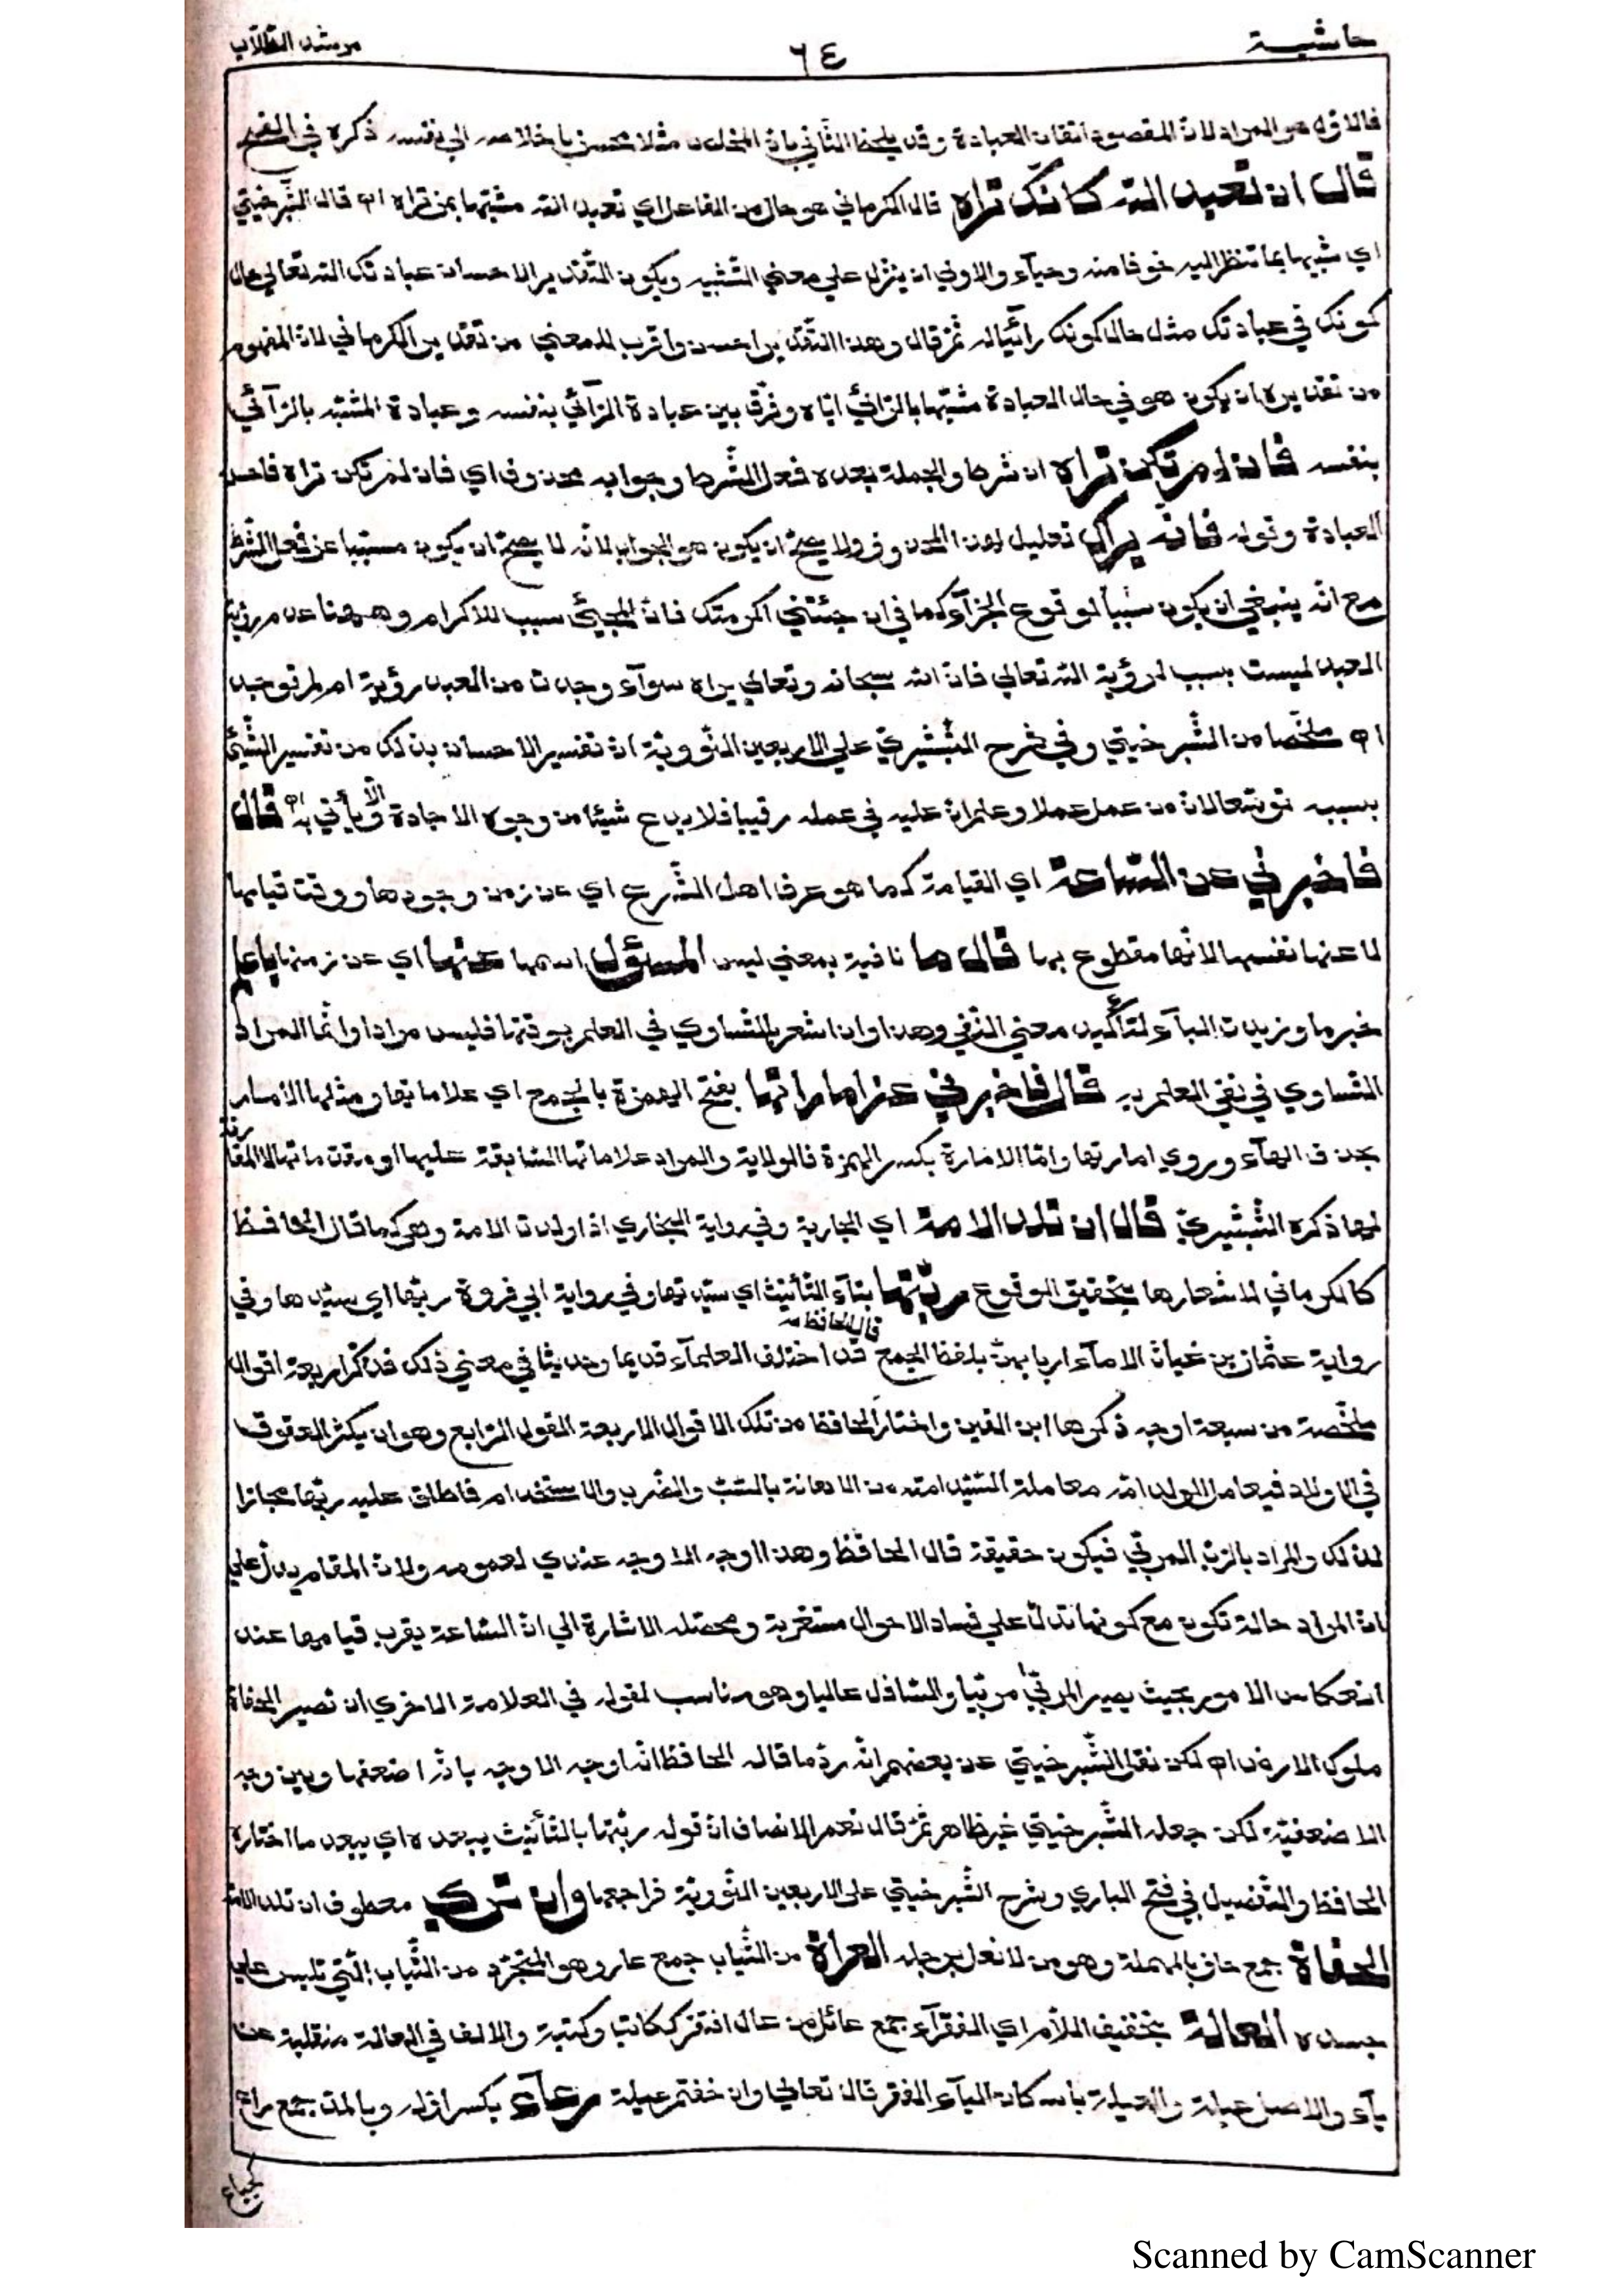 حاشية
٦٤
مرشد الطلاب
فالاول هو المراد لان المقصود اتقان العبادة وقد يلحظ الثاني بان المخلص مثلا محسن باخلاصه الي نفسه ذكره في الفتح
قال ان تعبد الله كانك تراه قال الكرماني هو حال من الفاعل اي تعبد الله مشبها بمن تراه اه قال الشبرخيتي
اي شبيها بما تنظر اليه خوفا منه وحيآء والاولي ان ينزل علي معني التشبيه ويكون التقدير الاحسان عبادتك الله تعالي حال
كونك في عبادتك مثل حال كونك رآئيا له ثم قال وهذا التقدير احسن واقرب للمعني من تقدير الكرماني لان المفهوم
من تقديره ان يكون هو في حال العبادة مشبها بالرآئي اياه وفرق بين عبادة الرآئي بنفسه وعبادة المشبه بالرآئي
بنفسه فان لم تكن تراه ان شرط والجملة بعده فعل الشرط وجوابه محذوف اي فان لم تكن تراه فاحسن
العبادة وقوله فانه يراك تعليل لهذا المحذوف ولا يصح ان يكون هو الجواب لانه لا يصح ان يكون مسببا عن فعل الشرط
مع انه ينبغي ان يكون سببا لوقوع الجزآء كما في ان جئتني اكرمتك فان المجيئ سبب للاكرام وههنا عدم رؤية
العبد ليست بسبب لرؤية الله تعالي فان الله سبحانه وتعالي يراه سوآء وجدت من العبد رؤية ام لم توجد
اه ملخصا من الشبرخيتي وفي شرح الشبشيري علي الاربعين النووية ان تفسير الاحسان بذلك من تفسير الشيئ
بسببه توسعا لان من عمل عملا وعلم ان عليه في عمله رقيبا فلا يدع شيئا من وجوه الاجادة الا ويأتي به اه قال
فاخبرني عن الساعة اي القيامة كما هو عرف اهل الشرع اي عن زمن وجودها ووقت قيامها
لا عنها نفسها لانها مقطوع بها قال ما نافية بمعني ليس المسؤل اسمها عنها اي عن زمنها باعلم
خبر ما وزيدت البآء لتأكيد معني النفي وهذا وان اشعر بالتساوي في العلم بوقتها فليس مرادا وانما المراد
التساوي في نفي العلم به قال فاخبرني عن اماراتها بفتح الهمزة بالجمع اي علاماتها ومثلها الامار
بحذف الهآء وروي امارتها واما الامارة بكسر الهمزة فالولاية والمراد علاماتها السابقة عليها او مقدماتها لا المقارنة
لها ذكره الشبشيري قال ان تلد الامة اي الجارية وفي رواية البخاري اذا ولدت الامة وهي كما قال الحافظ
كالكرماني لاشعارها بتحقيق الوقوع ربتها بتآء التأنيث اي سيدتها وفي رواية ابي فروة ربها اي سيدها وفي
رواية عثمان بن غياث الامآء اربابهن بلفظ الجمع قال الحافظ قد اختلف العلمآء قديما وحديثا في معني ذلك فذكر اربعة اقوال
ملخصة من سبعة اوجه ذكرها ابن التين واختار الحافظ من تلك الاقوال الاربعة القول الرابع وهو ان يكثر العقوق
في الاولاد فيعامل الولد امه معاملة السيد امته من الاهانة بالسب والضرب والاستخدام فاطلق عليه ربها مجازا
لذلك والمراد بالرب المربي فيكون حقيقة قال الحافظ وهذا اوجه الاوجه عندي لعمومه ولان المقام يدل علي
ان المراد حالة تكون مع كونها تدل علي فساد الاحوال مستغربة ومحصله الاشارة الي ان الساعة يقرب قيامها عند
انعكاس الامور بحيث يصير المربي مربيا والسافل عاليا وهو مناسب لقوله في العلامة الاخري ان تصير الحفاة
ملوك الارض اه لكن نقل الشبرخيتي عن بعضهم انه رد ما قاله الحافظ انه اوجه الاوجه بانه اضعفها وبين وجه
الاضعفية لكن جعله الشبرخيتي غير ظاهر ثم قال نعم الانصاف ان قوله ربتها بالتأنيث يبعده اي يبعد ما اختاره
الحافظ والتفصيل في فتح الباري وشرح الشبرخيتي علي الاربعين النووية فراجعها وان تري معطوف ان تلد الامة
الحفاة جمع حاف بالمهملة وهو من لا نعل برجله العراة من الثياب جمع عار وهو المتجرد من الثياب التي تلبس علي
جسده العالة بتخفيف اللام اي الفقرآء جمع عائل من عال افتقر ككاتب وكتبة والالف في العالة منقلبة عن
يآء والاصل عيلة والعيلة باسكان اليآء الفقر قال تعالي وان خفتم عيلة رعآء بكسر اوله وبالمد جمع راع
كجياع
Scanned by CamScanner